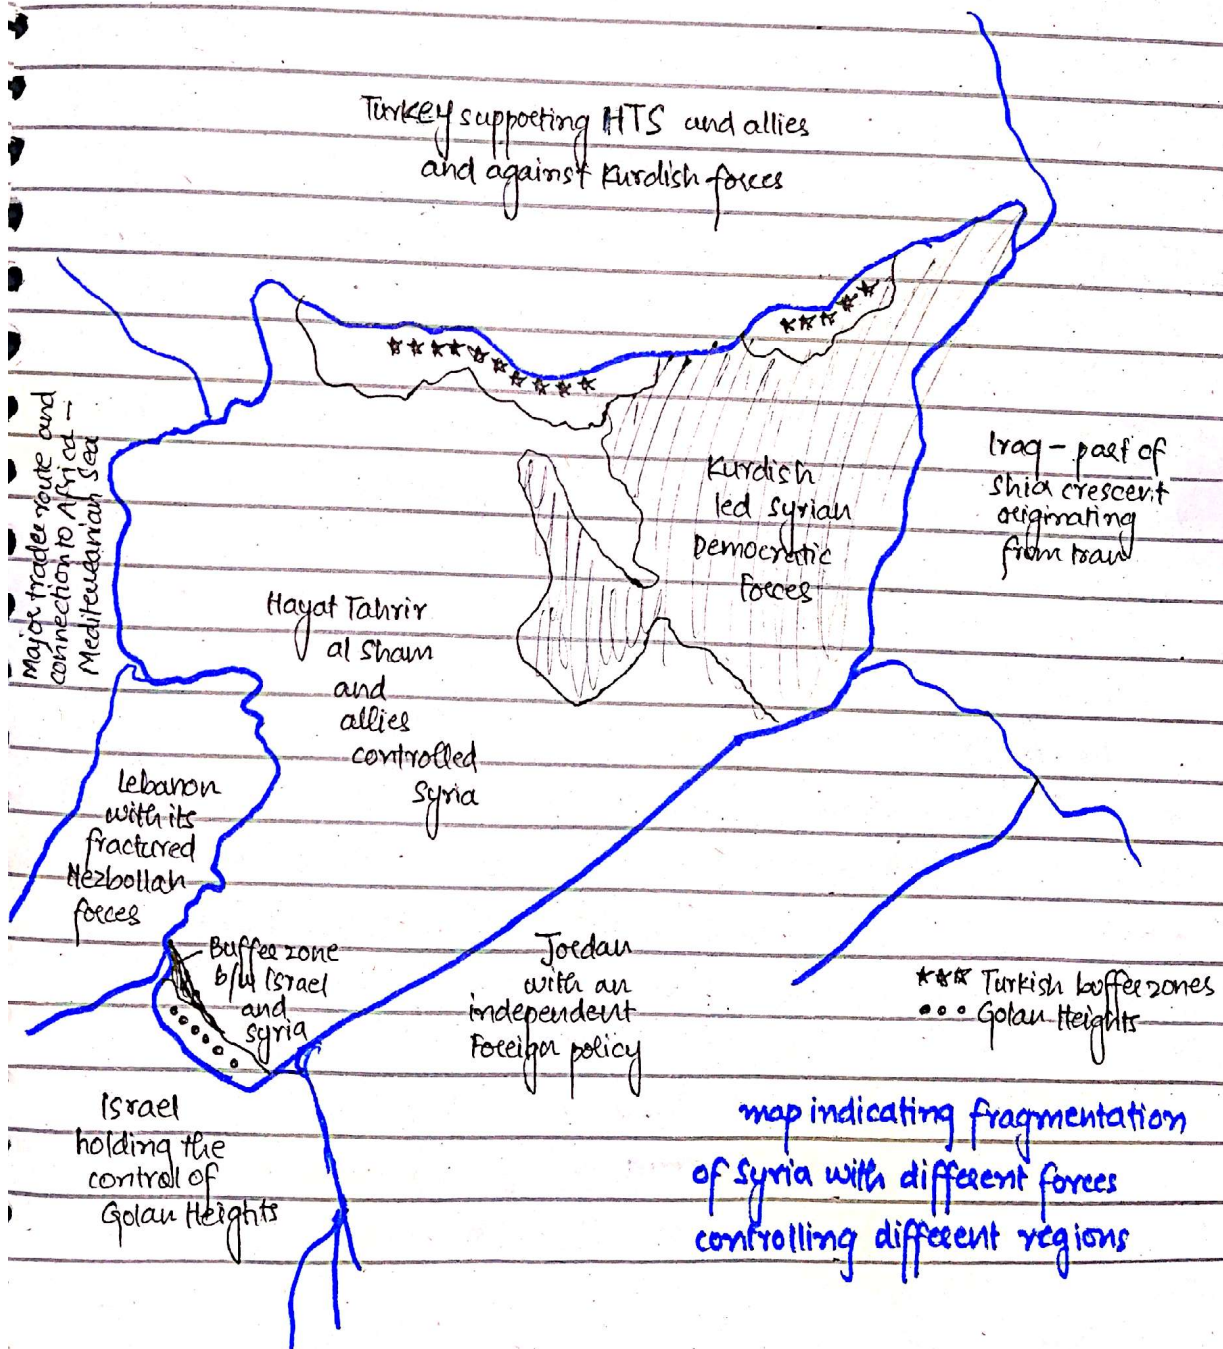 Turkey supporting HTS and allies
and against Kurdish forces
Major trade route and
connection to Africa —
Mediterranian Sea
Kurdish
led Syrian
Democratic
Forces
Iraq – part of
Shia crescent
originating
from Iran
Hayat Tahrir
al Sham
and
allies
controlled
Syria
Lebanon
with its
fractured
Hezbollah
forces
Buffer zone
b/w Israel
and
Syria
Jordan
with an
independent
Foreign policy
*** Turkish buffer zones
••• Golan Heights
Israel
holding the
control of
Golan Heights
map indicating fragmentation
of Syria with different forces
controlling different regions